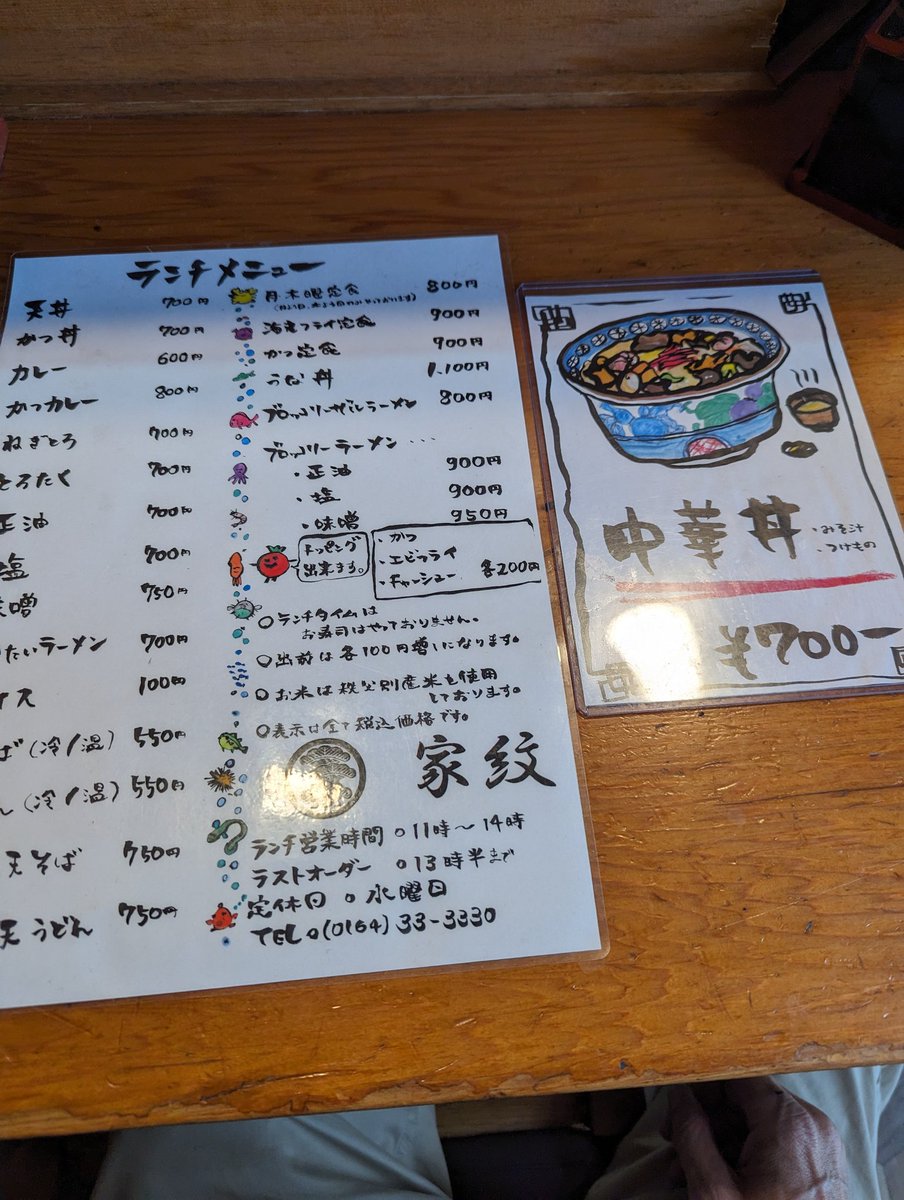 ランチメニュー
天丼 700円
かつ丼 700円
カレー 600円
かつカレー 800円
ねぎとろ 700円
とろたく 700円
正油 700円
塩 700円
味噌 750円
たいラーメン 700円
イス 100円
ば(冷/温) 550円
ん(冷/温) 550円
天そば 750円
天うどん 750円
月・木曜定食 800円
海老フライ定食 900円
かつ定食 900円
うな丼 1,100円
ブロッコリーザルラーメン 800円
ブロッコリーラーメン ・・・
・正油 900円
・塩 900円
・味噌 950円
トッピング
出来ます。
・かつ
・エビフライ
・チャーシュー 各200円
○ランチタイムは
お寿司はやっておりません。
○出前は各100円増しになります。
○お米は秩父別産米を使用
しております。
○表示は全て税込価格です。
家紋
ランチ営業時間 ○11時～14時
ラストオーダー ○13時半まで
定休日 ○水曜日
TEL○(0164)33-3330
中華丼
・みそ汁
・つけもの
¥700ー
西